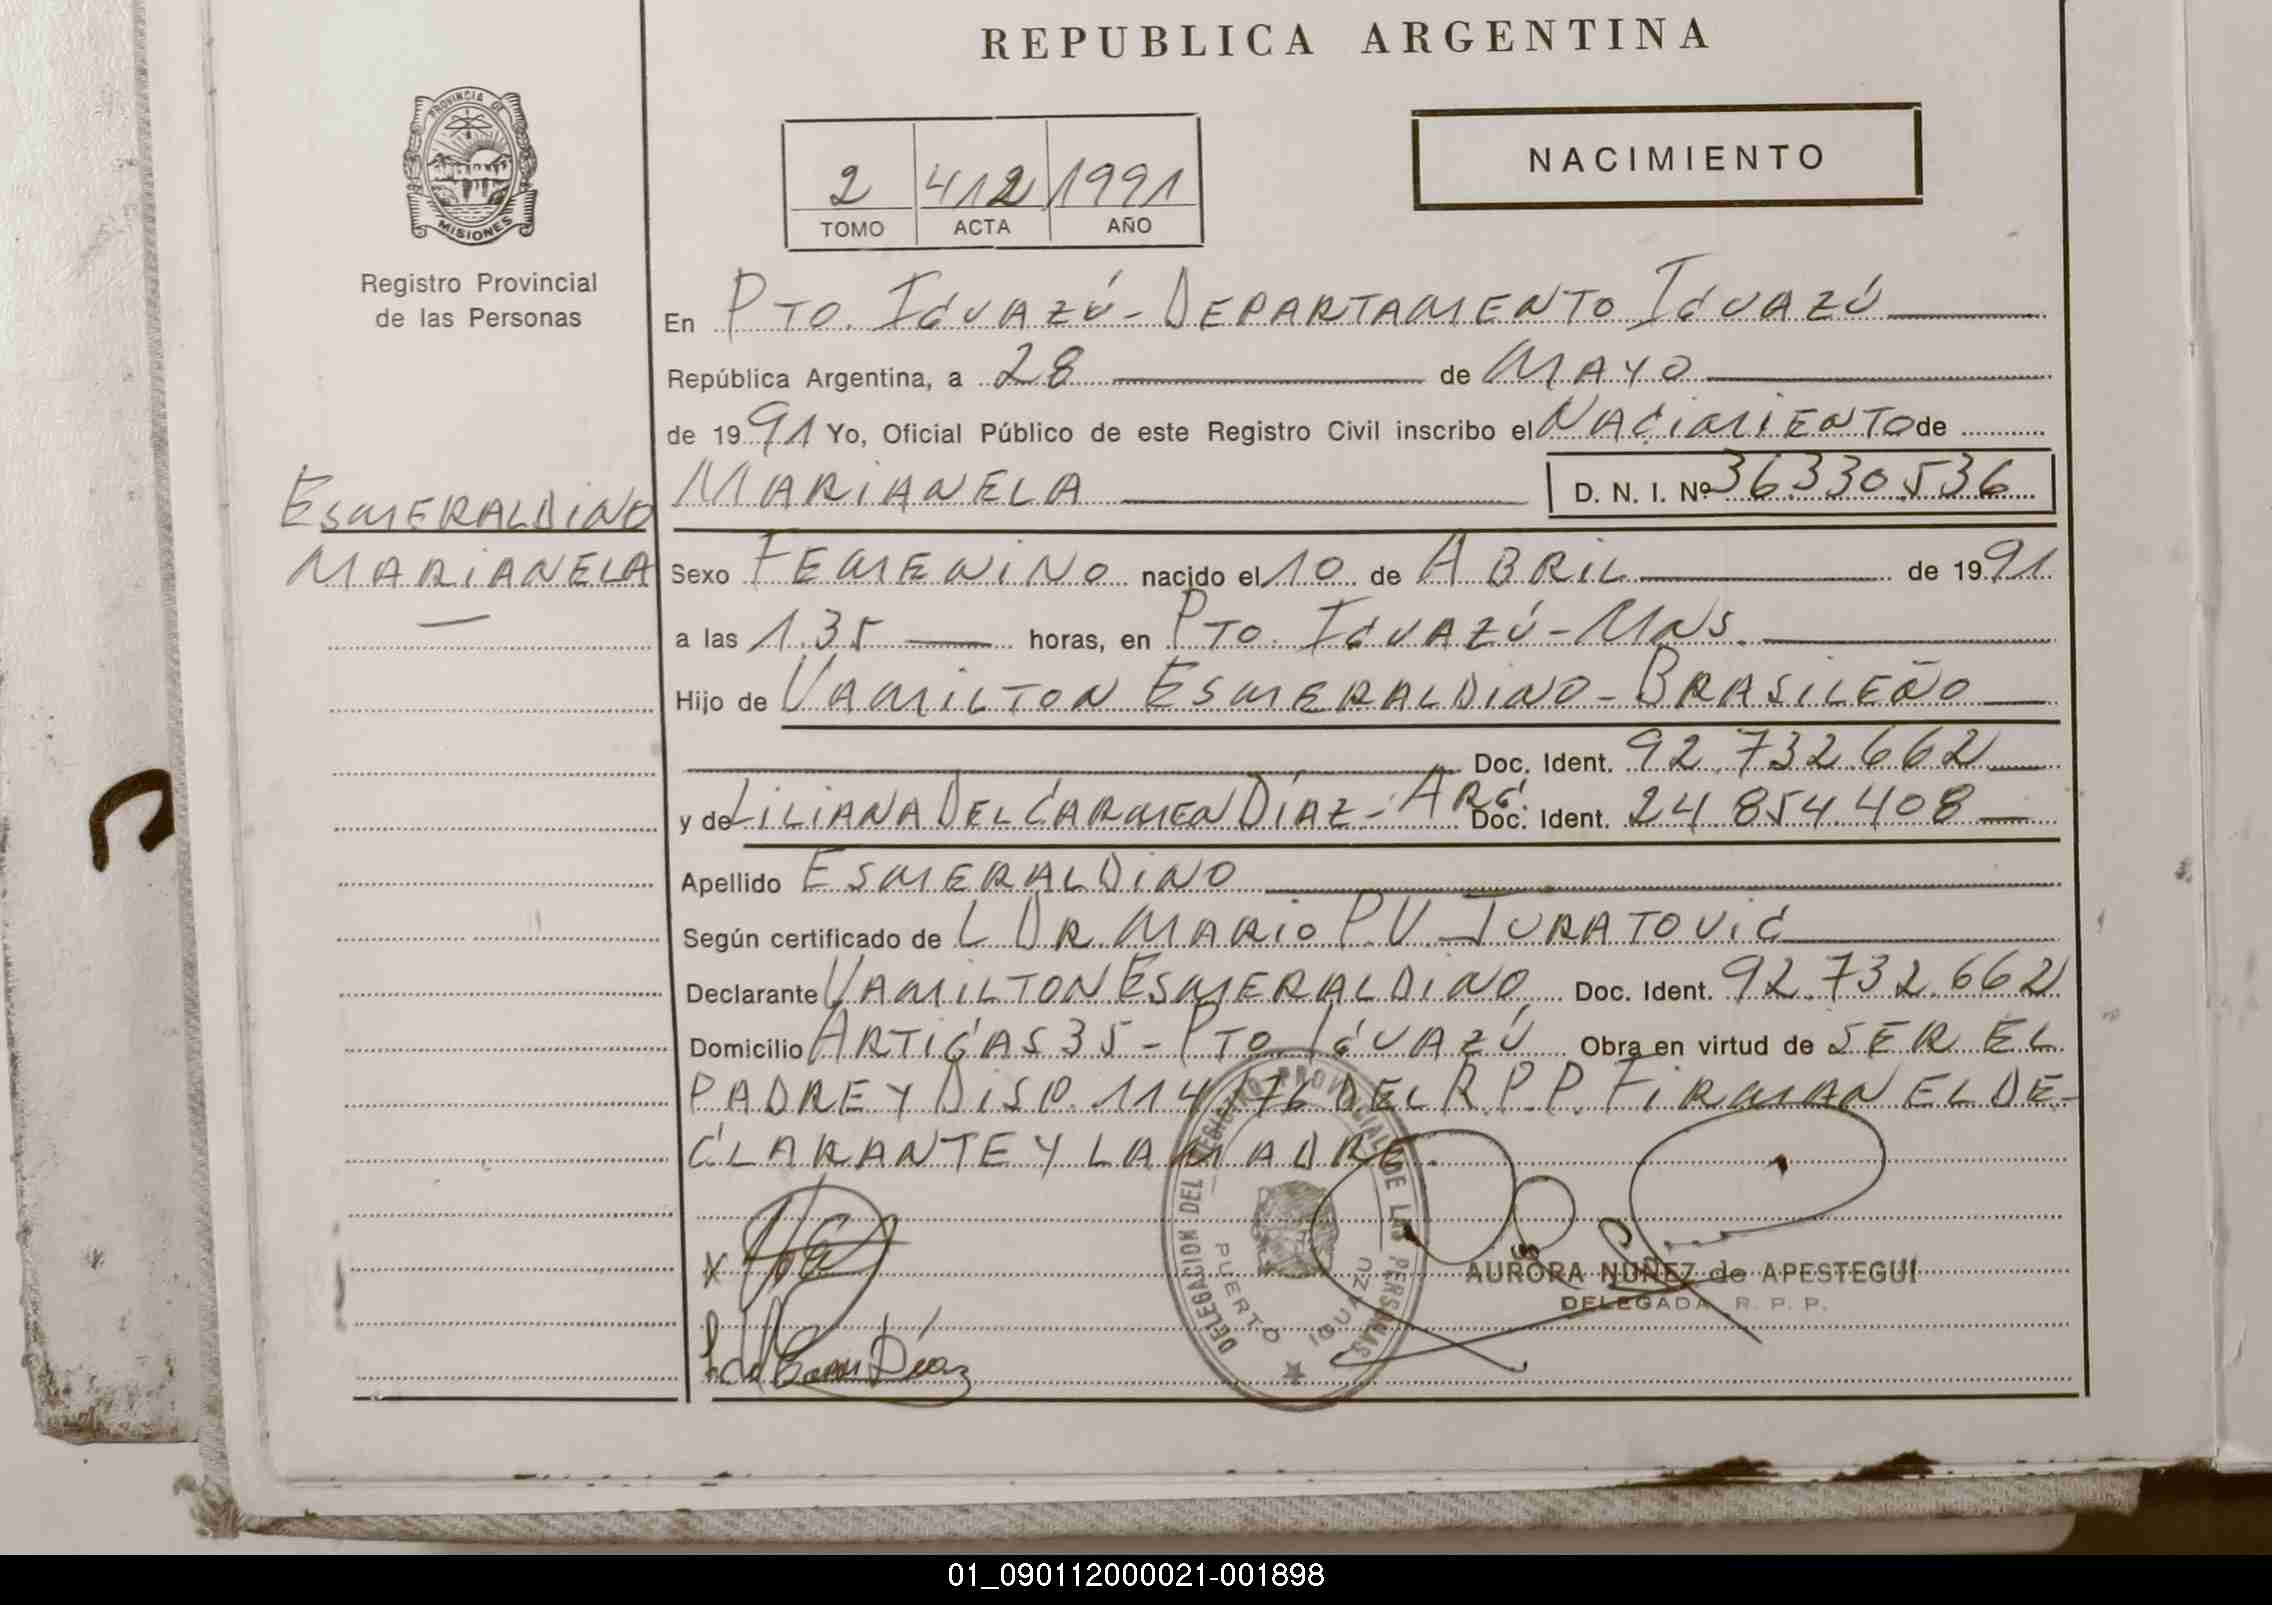 REPUBLICA ARGENTINA
PROVINCIA DE
MISIONES
Registro Provincial
de las Personas
2 412 1991
TOMO ACTA AÑO
NACIMIENTO
En PTO. IGUAZÚ - DEPARTAMENTO IGUAZÚ
República Argentina, a 28 de MAYO
de 1991 Yo, Oficial Público de este Registro Civil inscribo el NACIMIENTO de
MARIANELA D. N. I. Nº 36.330.536
ESMERALDINO
MARIANELA
Sexo FEMENINO nacido el 10 de ABRIL de 1991
a las 1.35 horas, en PTO. IGUAZÚ - MNS.
Hijo de VAMILTON ESMERALDINO - BRASILEÑO
Doc. Ident. 92.732.662
y de LILIANA DEL CARMEN DÍAZ - ARG. Doc. Ident. 24.854.408
Apellido ESMERALDINO
Según certificado de L DR MARIO P.V. JURATOVIC
Declarante VAMILTON ESMERALDINO Doc. Ident. 92.732.662
Domicilio ARTIGAS 35 - PTO. IGUAZÚ Obra en virtud de SER EL
PADRE Y DISP. 114/76 DEL R.P.P. FIRMAN EL DE-
CLARANTE Y LA MADRE.
DELEGACION DEL REGISTRO PROVINCIAL DE LAS PERSONAS
PUERTO IGUAZU
X
AURORA NUÑEZ de APESTEGUI
DELEGADA R. P. P.
Díaz
01_090112000021-001898